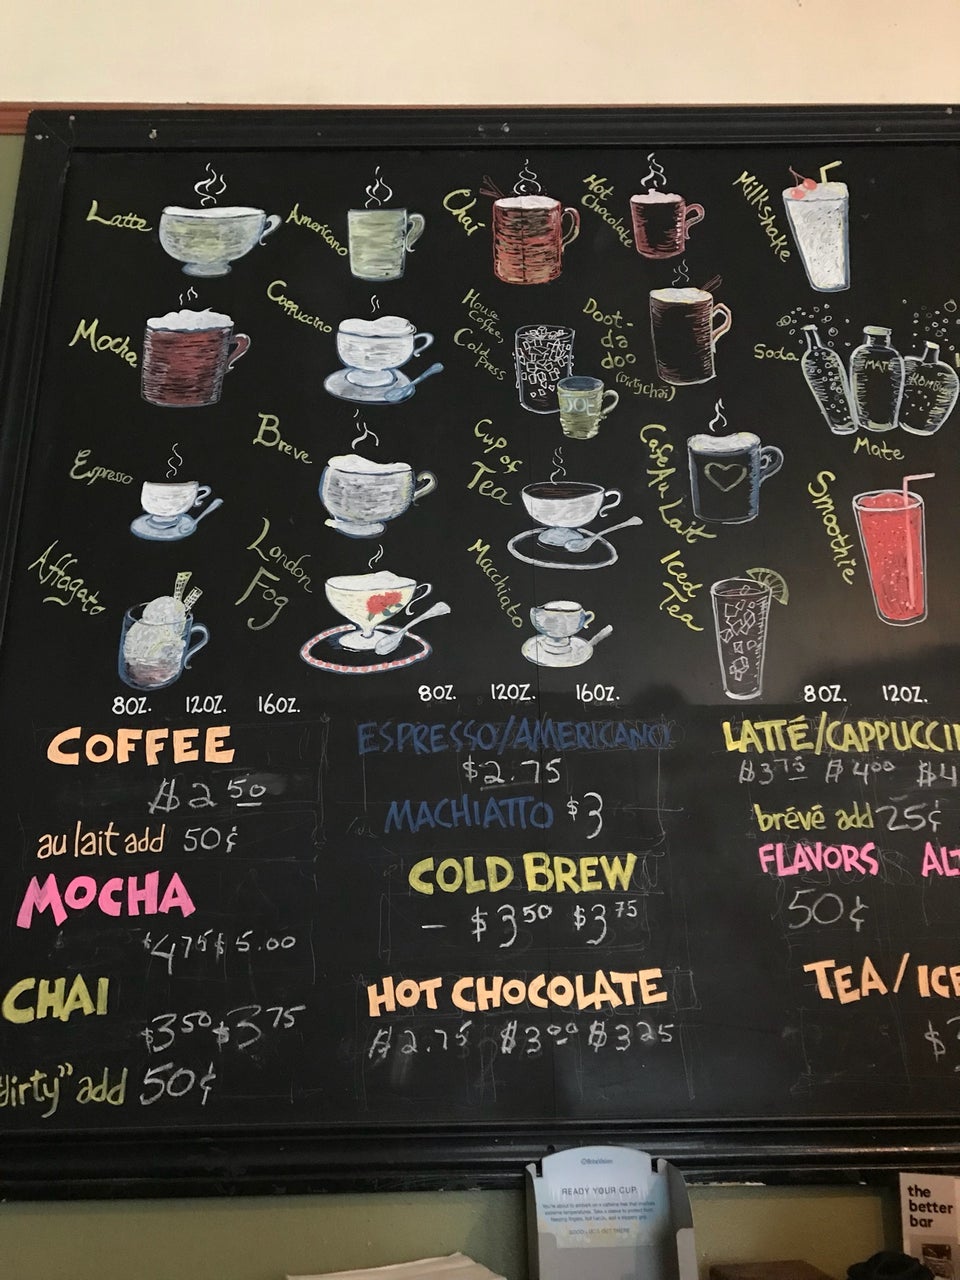 Latte
Americano
Chai
Hot
Chocolate
Milkshake
Mocha
Cappuccino
House
Coffee,
Cold
Press
JOE
Doot-
da
doo
(Dirty Chai)
Soda
MATE
KOMBU
Mate
Espresso
Breve
Cup of
Tea
Cafe Au Lait
Smoothie
Affagato
London
Fog
Macchiato
Iced
Tea
8OZ. 12OZ. 16OZ.
COFFEE
$2.50
au lait add 50¢
MOCHA
$4.75 $5.00
CHAI
$3.50 $3.75
dirty" add 50¢
8OZ. 12OZ. 16OZ.
ESPRESSO/AMERICANO
$2.75
MACHIATTO $3
COLD BREW
- $3.50 $3.75
HOT CHOCOLATE
$2.75 $3.00 $3.25
8OZ. 12OZ.
LATTÉ/CAPPUCCI
$3.75 $4.00 $4
brévé add 25¢
FLAVORS ALT
50¢
TEA/ICE
$
BriteVision
READY YOUR CUP.
the
better
bar